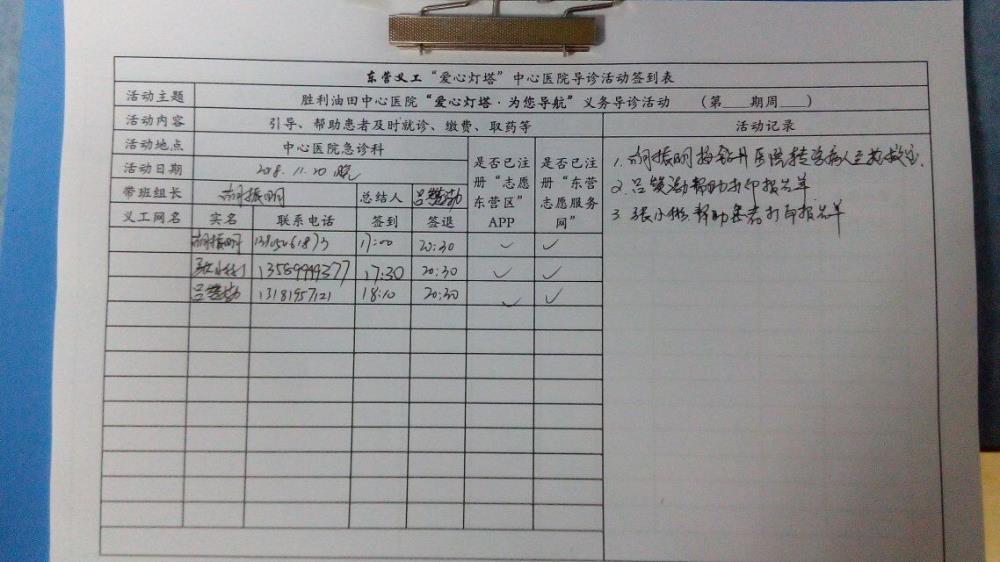 东营义工“爱心灯塔”中心医院导诊活动签到表
活动主题 胜利油田中心医院“爱心灯塔·为您导航”义务导诊活动 （第 期周 ）
活动内容 引导、帮助患者及时就诊、缴费、取药等 活动记录
活动地点 中心医院急诊科
活动日期 2018.11.20 晚
是否已注册“志愿东营区”APP
是否已注册“东营志愿服务网”
带班组长 胡振明 总结人
义工网名 实名 联系电话 签到 签退
胡振明 17:00 20:30 ✓ ✓
13589999377 17:30 20:30 ✓ ✓
13181957121 18:10 20:30 ✓ ✓
1. 胡振明 病人至抢救室.
2. 帮助打印报告单
3. 张小 帮助患者打印报告单